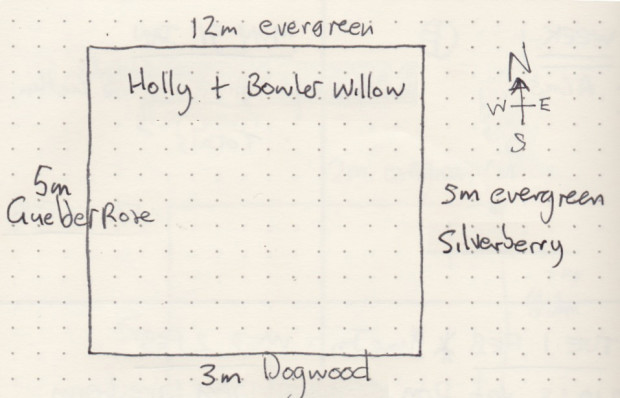 12m evergreen
Holly + Bowles Willow
N
W E
S
5m
Guelder Rose
5m evergreen
Silverberry
3m Dogwood